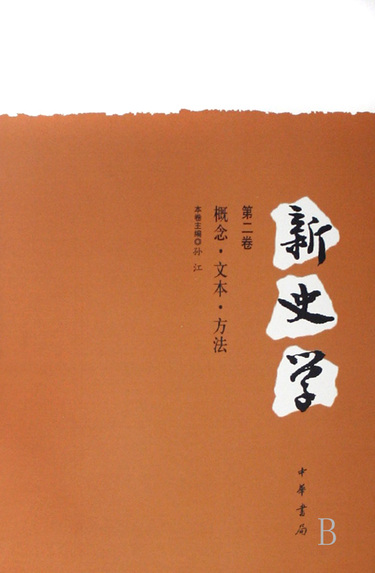 新史学
第二卷
概念·文本·方法
本卷主编◎孙江
中华书局
B